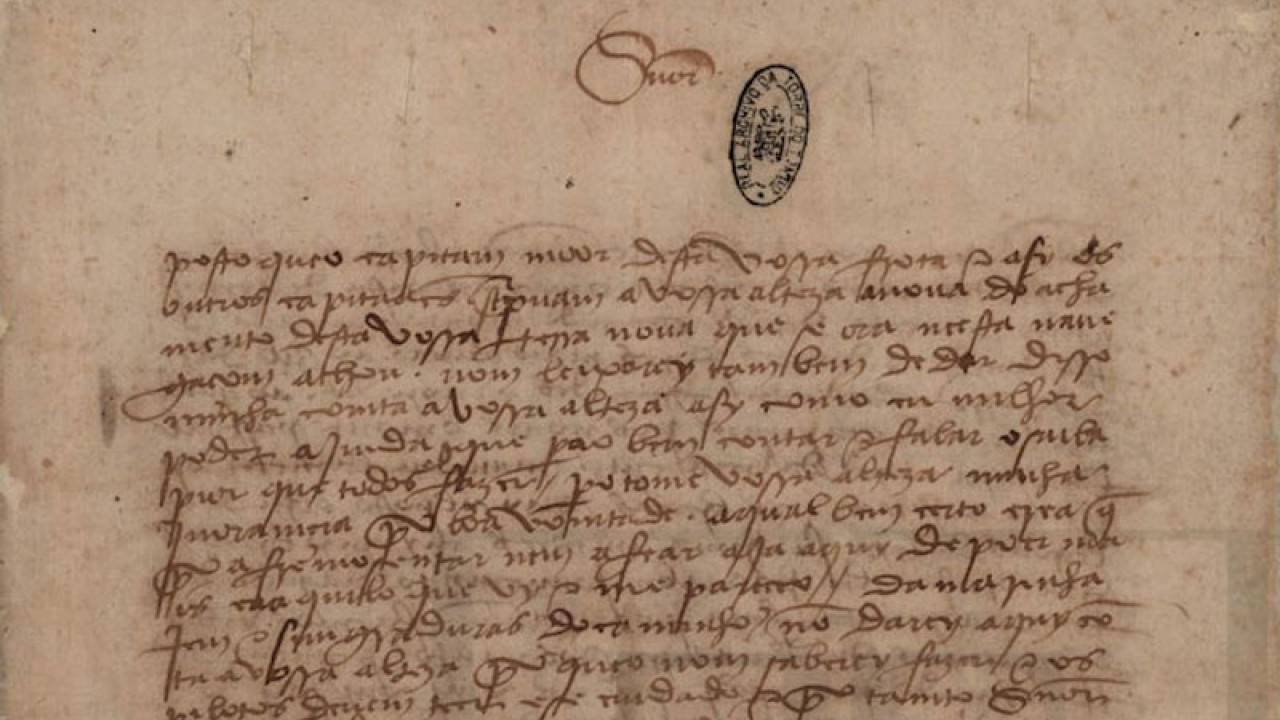 Snor
REAL ARCHIVO DA TORRE DO TOMBO
posto queo capitam moor desta vossa frota e asy os
outros capitaães screpuam a vossa alteza anoua do acha
mento desta vossa terra noua que se ora neesta naue
gaçom achou. nom leixarey tambem de dar disso
minha comta avossa alteza asy como eu milhor
poder ajmda que pera o bem contar e falar o saiba
pior que todos fazer. pero tome vossa alteza minha
jnoramçia por boa vomtade. aqual bem certo crea q̃
por afremosentar nem afear aja aquy de poer mais
ca aquilo que vy e me pareceo / da marinha
jem e simgraduras do caminho nõ darey aquy cõ
ta a vossa alteza por queo nom saberey fazer e os
pilotos deuem teer ese cuidado e por tamto Snor